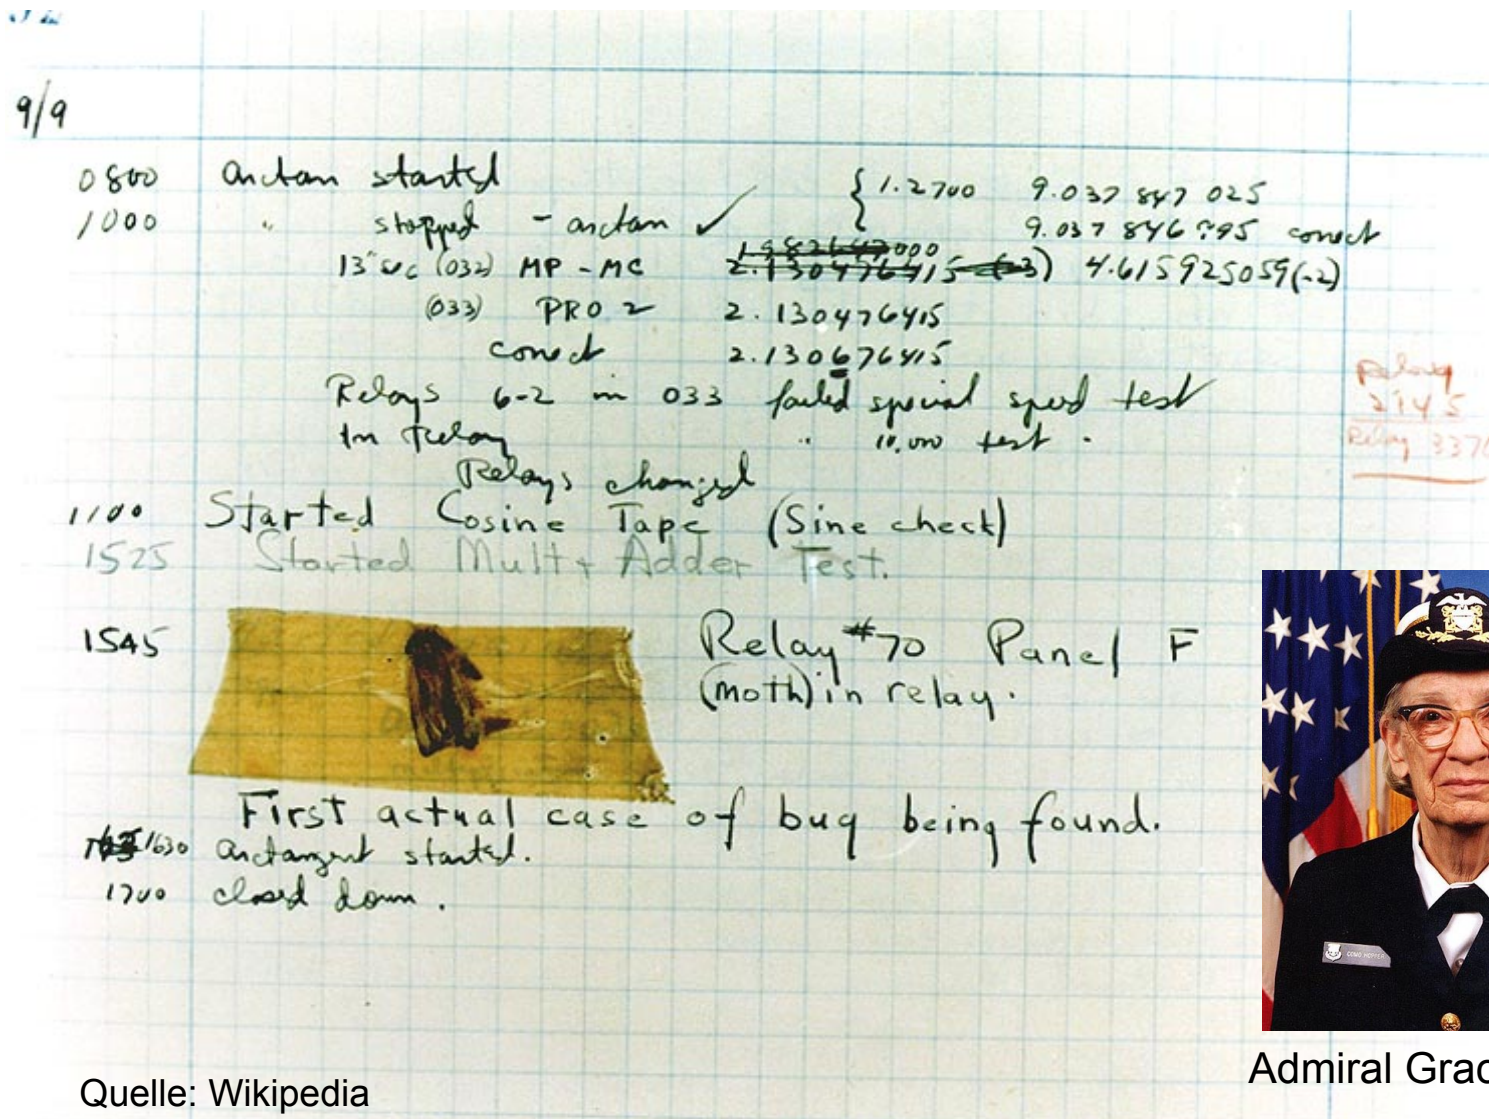 9/9
0800 arctan started { 1.2700 9.037 847 025
1000 " stopped - arctan ✓ 9.037 846 995 correct
13"uc (032) MP - MC 1.982647000 2.130476415 (-3) 4.615925059(-2)
(033) PRO 2 2.130476415
correct 2.130676415
Relays 6-2 in 033 failed special speed test
In Relay " 10,000 test .
Relay
2145
Relay 3370
Relays changed
1100 Started Cosine Tape (Sine check)
1525 Started Mult + Adder Test.
1545 Relay #70 Panel F
(moth) in relay.
First actual case of bug being found.
1630 arctangent started.
1700 closed down.
COMO HOPPER
Admiral Grac
Quelle: Wikipedia